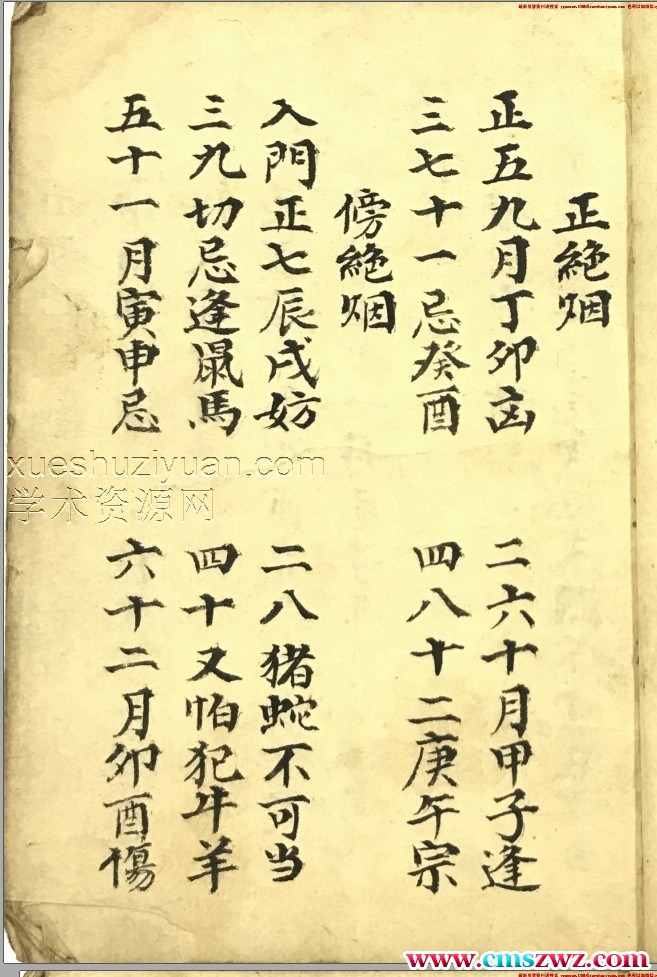 正絶烟
正五九月丁卯凶
二六十月甲子逢
三七十一忌癸酉
四八十二庚午宗
傍絶烟
入門正七辰戌妨
二八猪蛇不可当
三九切忌逢鼠馬
四十又怕犯牛羊
五十一月寅申忌
六十二月卯酉傷
xueshuziyuan.com
学术资源网
www.cmszwz.com